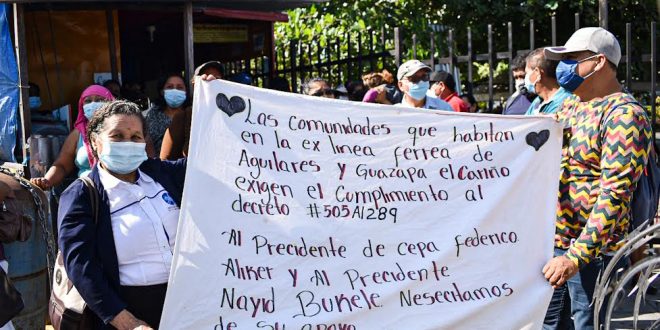 Las comunidades que habitan
en la ex linea ferrea de
Aguilares y Guazapa el cariño
exigen el cumplimiento al
decreto #505A1289
Al Precidente de cepa federico
Aliker y Al Precidente
Nayid Bukele. Nesecitamos
de su apoyo